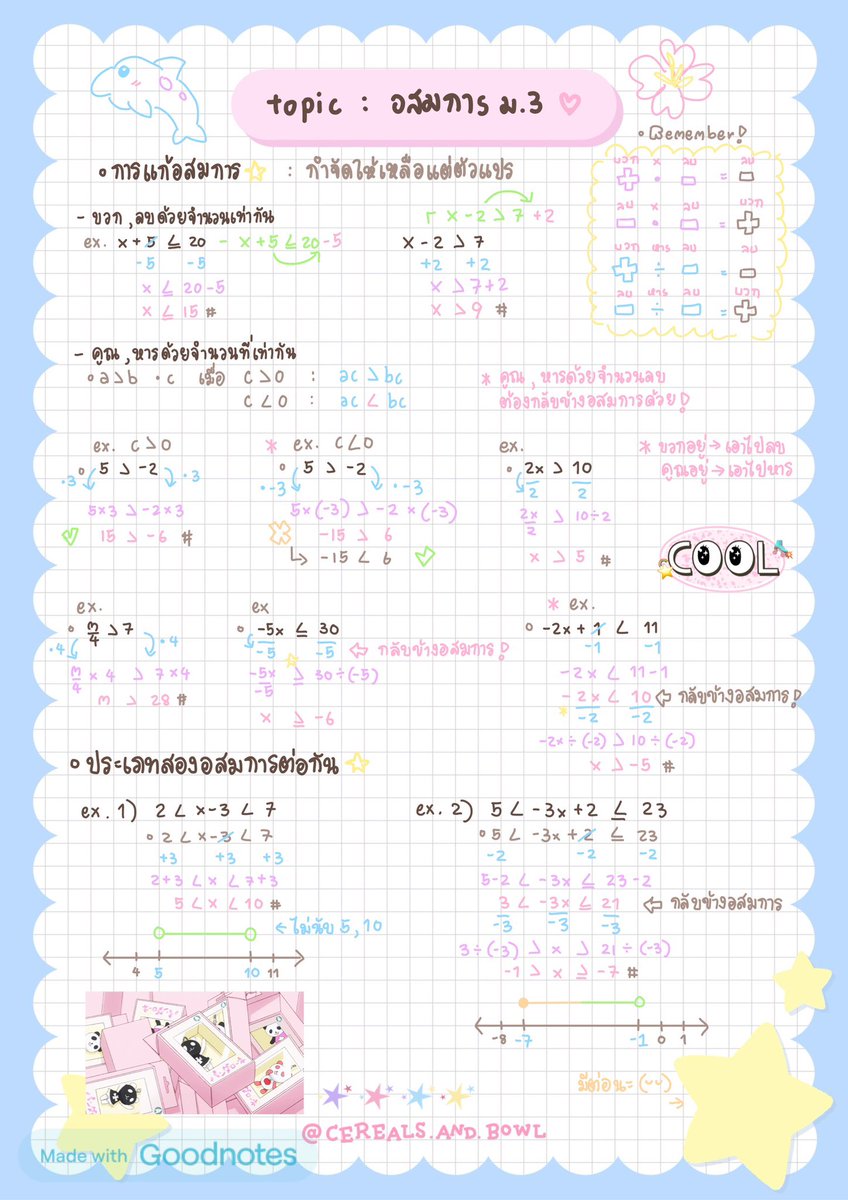 topic : อสมการ ม.3
• Remember!
บวก × ลบ ลบ
+ • - = -
ลบ × ลบ บวก
- • - = +
บวก หาร ลบ ลบ
+ ÷ - = -
ลบ หาร ลบ บวก
- ÷ - = +
• การแก้อสมการ : กำจัดให้เหลือแต่ตัวแปร
- บวก, ลบด้วยจำนวนเท่ากัน
ex. x + 5 ≤ 20 - x + 5 ≤ 20 - 5
-5 -5
x ≤ 20 - 5
x ≤ 15 #
r x - 2 > 7 + 2
x - 2 > 7
+2 +2
x > 7 + 2
x > 9 #
- คูณ, หารด้วยจำนวนที่เท่ากัน
• a > b • c เมื่อ c > 0 : ac > bc
c < 0 : ac < bc
* คูณ, หารด้วยจำนวนลบ
ต้องกลับข้างอสมการด้วย!
ex. c > 0
• 5 > -2
• 3 • 3
5 × 3 > -2 × 3
15 > -6 #
* ex. c < 0
• 5 > -2
• -3 • -3
5 × (-3) > -2 × (-3)
-15 > 6
↳ -15 < 6
ex.
• 2x > 10
2 2
2x/2 > 10 ÷ 2
x > 5 #
* บวกอยู่ → เอาไปลบ
คูณอยู่ → เอาไปหาร
COOL
ex.
• m/4 > 7
• 4 • 4
m/4 × 4 > 7 × 4
m > 28 #
ex
• -5x ≤ 30
-5 -5 ⇦ กลับข้างอสมการ!
-5x/-5 ≥ 30 ÷ (-5)
x ≥ -6
* ex.
• -2x + 1 < 11
-1 -1
-2x < 11 - 1
-2x < 10 ⇦ กลับข้างอสมการ!
* -2 -2
-2x ÷ (-2) > 10 ÷ (-2)
x > -5 #
• ประเภทสองอสมการต่อกัน
ex. 1) 2 < x - 3 < 7
• 2 < x - 3 < 7
+3 +3 +3
2 + 3 < x < 7 + 3
5 < x < 10 #
← ไม่นับ 5, 10
4 5 10 11
ex. 2) 5 < -3x + 2 ≤ 23
• 5 < -3x + 2 ≤ 23
-2 -2 -2
5 - 2 < -3x ≤ 23 - 2
3 < -3x ≤ 21 ⇦ กลับข้างอสมการ
-3 -3 -3
3 ÷ (-3) > x ≥ 21 ÷ (-3)
-1 > x ≥ -7 #
-8 -7 -1 0 1
มีต่อนะ (ᵕᵕ)
→
@CEREALS.AND.BOWL
Made with Goodnotes